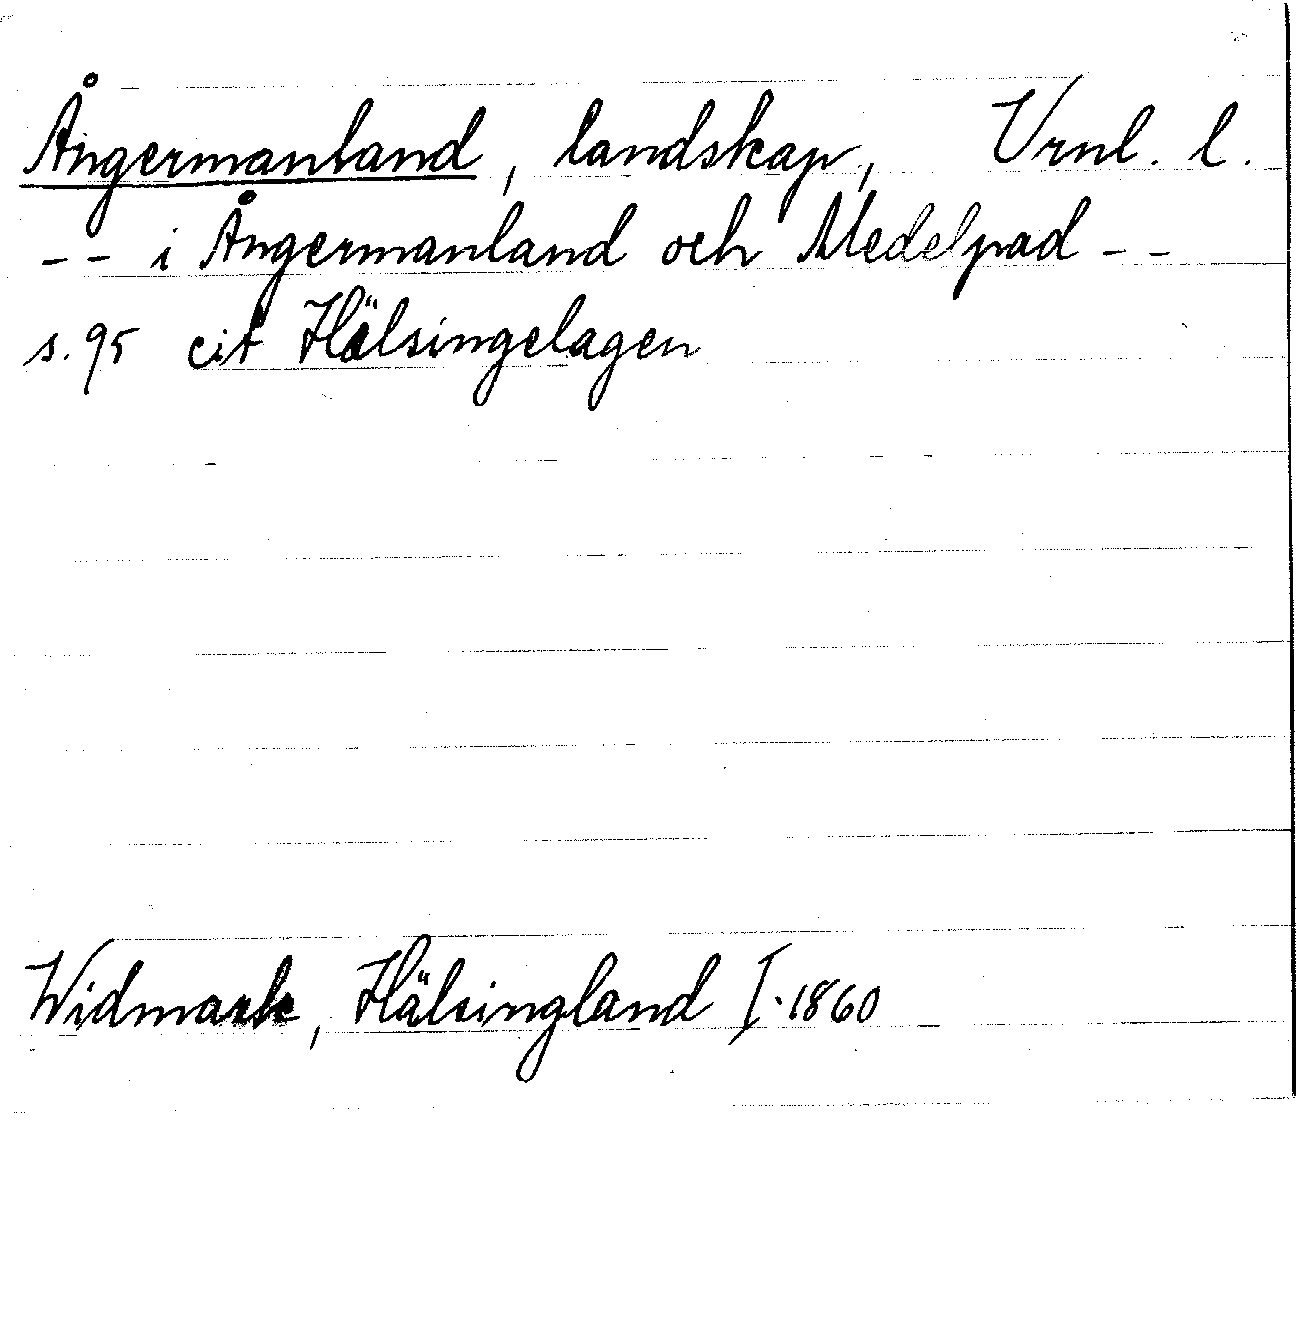 Ångermanland, landskap, Vrnl. l.
-- i Ångermanland och Medelpad --
s. 95 cit Hälsingelagen
Widmark, Hälsingland I. 1860